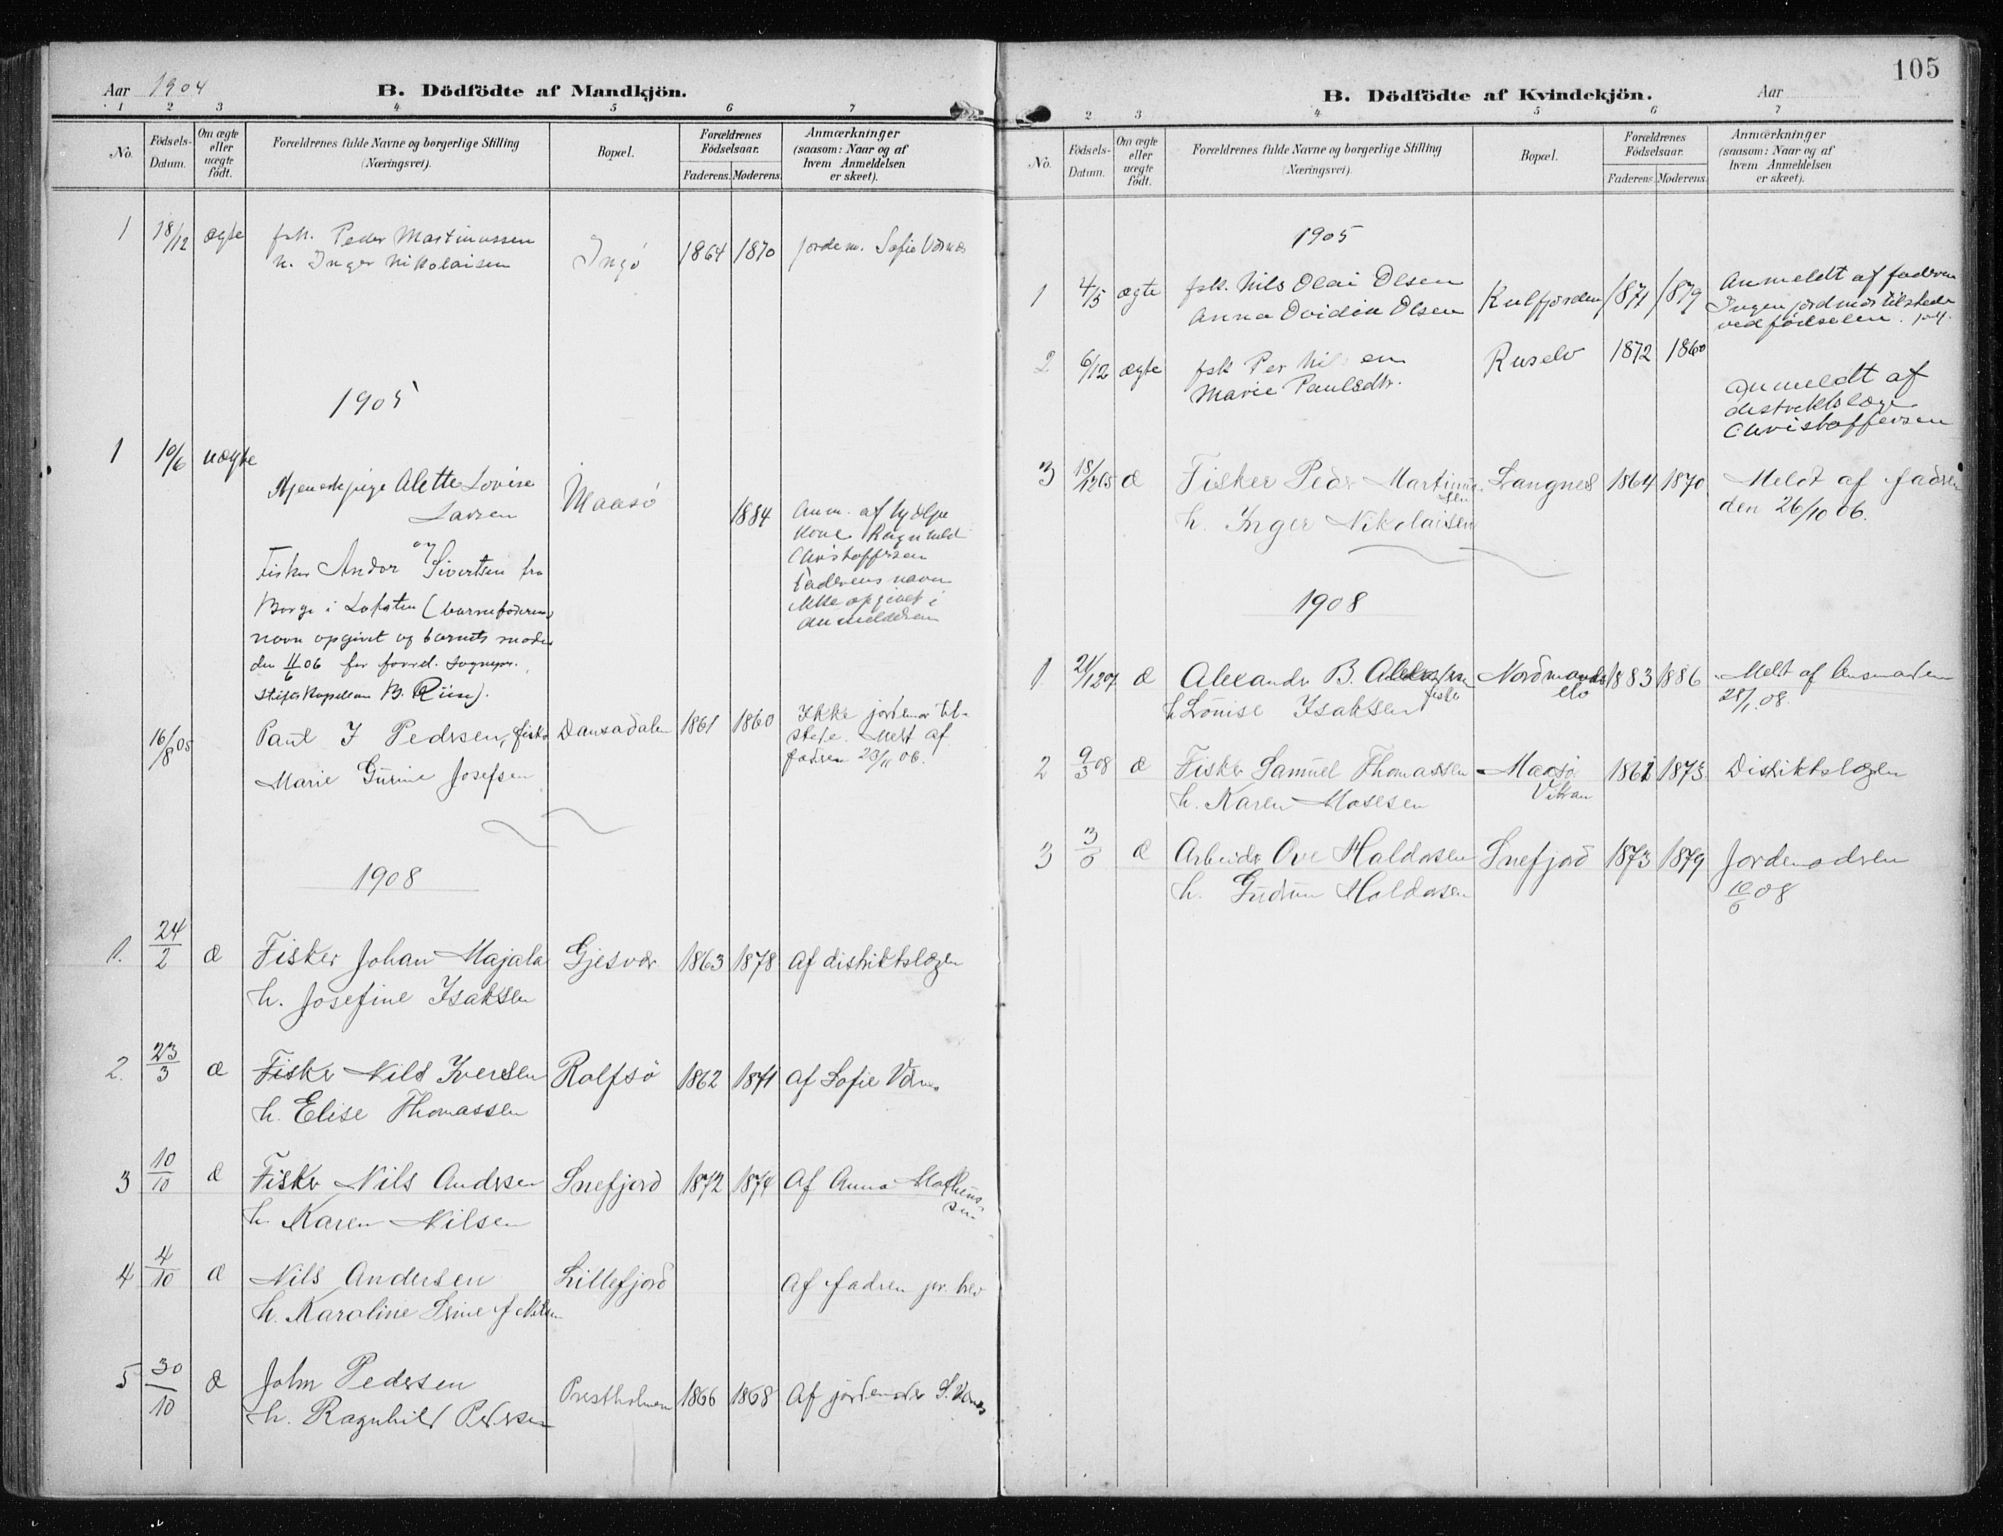 Aar 1904
B. Dödfödte af Mandkjön.
1 2 3 4 5 6 7
No.
Födsels-Datum.
Om ægte eller uægte födt.
Forældrenes fulde Navne og borgerlige Stilling (Næringsvei).
Bopæl.
Forældrenes Födselsaar.
Faderens. Moderens.
Anmærkninger (saasom: Naar og af hvem Anmeldelsen er skeet).
1 18/12 ægte fsk. Peder Martinussen Ingö 1864 1870 jordem. Sofie Værnæs
h. Inger Nikolaisen
1905
1 10/6 uægte
Alette Lovise Maasö 1884 Anm. af hjælpe
Larsen kone Ragnhild
og Christoffersen
Fisker Andor Sivertsen fra Faderens navn
Borge i Lofoten (barnefaderens ikke opgivet i
navn opgivet og barnets moder anmeldelsen
den 11/6 06 for forrd. sognepr.
stiftskapellan B. Riise).
16/8 05 Paul I Pedersen, fisker 1861 1860 Ikke jordemor til-
stede. Melt af
Marie Gurine Josefsen fadren 23/11 06.
1908
1. 24/2 æ Fisker Johan Majala Gjesvær 1863 1878 Af distriktslægen
h. Josefine Isaksen
2. 23/3 æ Fisker Nils Iversen Rolfsö 1862 1871 Af Sofie Værnes
h. Elise Thomassen
3 10/10 æ Fisker Nils Andersen Snefjord 1872 1874 Af Anna Mathius-
h. Karen Nilsen sen
4 4/10 æ Nils Andersen Lillefjord Af fadren pr. brev
h. Karoline
5 30/10 æ John Pedersen Prestholmen 1866 1868 Af jordemoder S. Værnes
h. Ragnhild Pedersen
105
B. Dödfödte af Kvindekjön.
Aar
2 3 4 5 6 7
No.
Födsels-Datum.
Om ægte eller uægte födt.
Forældrenes fulde Navne og borgerlige Stilling (Næringsvei).
Bopæl.
Forældrenes Födselsaar.
Faderens. Moderens.
Anmærkninger (saasom: Naar og af hvem Anmeldelsen er skeet).
1905
1 4/5 ægte fsk. Nils Olai Olsen Kulfjorden 1871 1879 Anmeldt af faderen
Anna Ovidia Olsen Ingen jordmor tilstede
ved födselen.
2 6/12 ægte fsk Per Nilsen Ruselv 1872 1860
Marie Paulsdtr. Anmeldt af
distriktslæge
Christoffersen
3 18/12 05 æ Fisker Peder Martinus- Langnes 1864 1870 Meldt af fadren
sen den 26/10 06.
h. Inger Nikolaisen
1908
1 21/12 07 æ Alexander B. Nordmands- 1883 1886 Melt af lensmanden
fisker elv 28/1. 08.
h Louise Isaksen
2 9/3 08 æ Fisker Samuel Thomassen Maasö 1861 1873 Distriktslægen
h. Karen Mosesen
3 3/6 æ Arbeider Ove Haldorsen Snefjord 1873 1879 Jordemodren
h. Gudrun Haldorsen 10/6 08